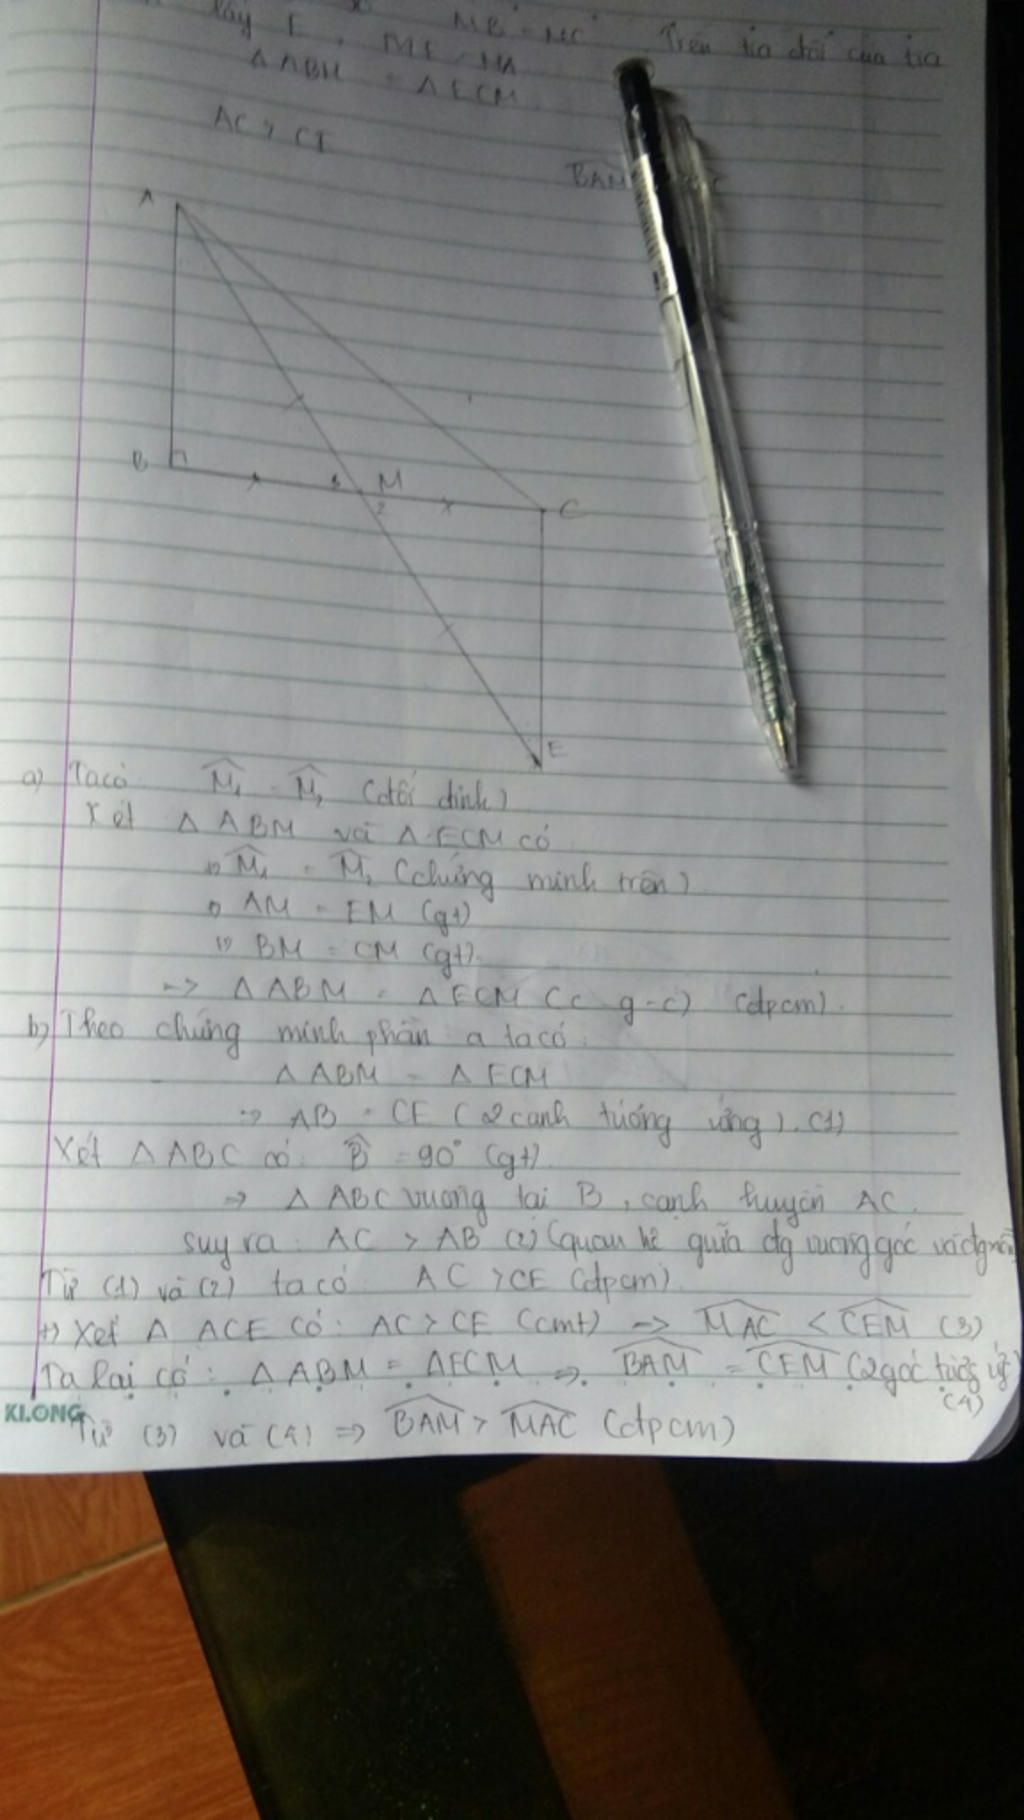 lấy E, ME = MA MB = MC Trên tia đối của tia
△ABM = △ECM
AC > CE
BAM
A
B
M
1
2
C
E
a) Ta có M̂₁ = M̂₂ (đối đỉnh)
Xét △ABM và △ECM có
M̂₁ = M̂₂ (chứng minh trên)
AM = EM (gt)
BM = CM (gt).
→ △ABM = △ECM (c g-c) (đpcm).
b) Theo chứng minh phần a ta có:
△ABM = △ECM
⇒ AB = CE (2 cạnh tương ứng). (1)
Xét △ABC có: B̂ = 90° (gt).
⇒ △ABC vuông tại B, cạnh huyền AC.
suy ra: AC > AB (2) (quan hệ giữa đg vuông góc và đg
Từ (1) và (2) ta có: AC > CE (đpcm).
+) Xét △ ACE có: AC > CE (cmt) → MAC < CEM (3)
Ta lại có: △ABM = △ECM ⇒ BAM = CEM (2 góc
(4)
KLONG
Từ (3) và (4) ⇒ BAM > MAC (đpcm)